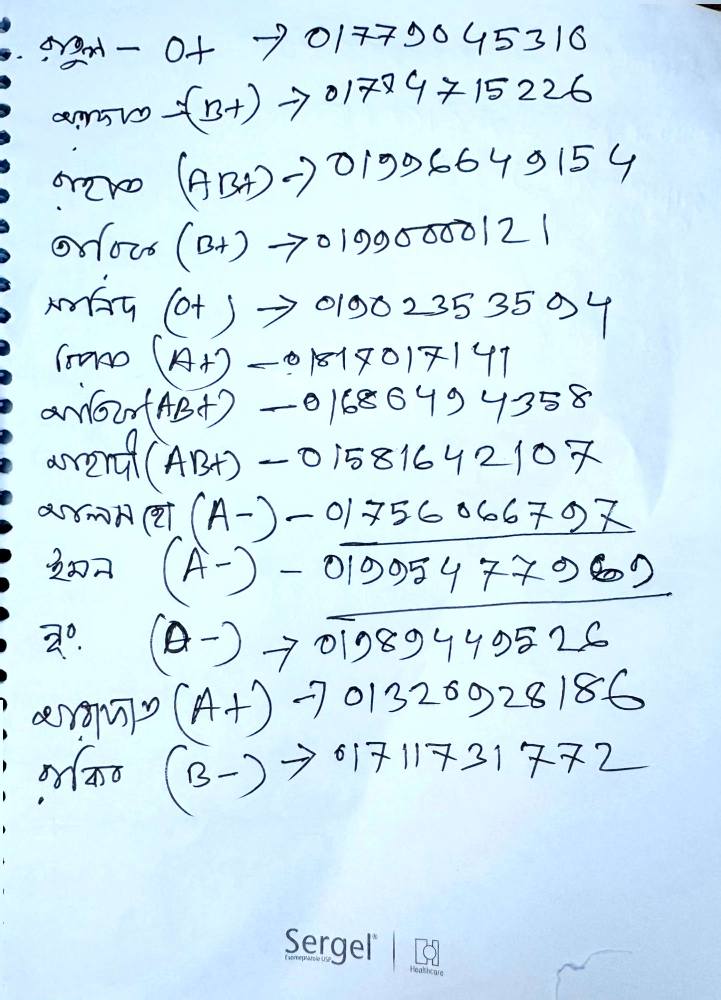 রাতুল - O+ → 01779045310
আরাফাত - (B+) → 01784715226
রাহাত (AB+) → 01996649154
তারিফ (B+) → 01990000121
সানিদ (O+) → 01902353594
(A+) - 01817017141
আতিফ (AB+) - 01686494358
মাহাদী (AB+) - 01581642107
(A-) - 01756066797
ইমন (A-) - 01995477969
নূং. (O-) → 01989449526
আরাফাত (A+) → 01320928186
রাকিব (B-) → 01711731772
Sergel®
Esomeprazole USP
Healthcare